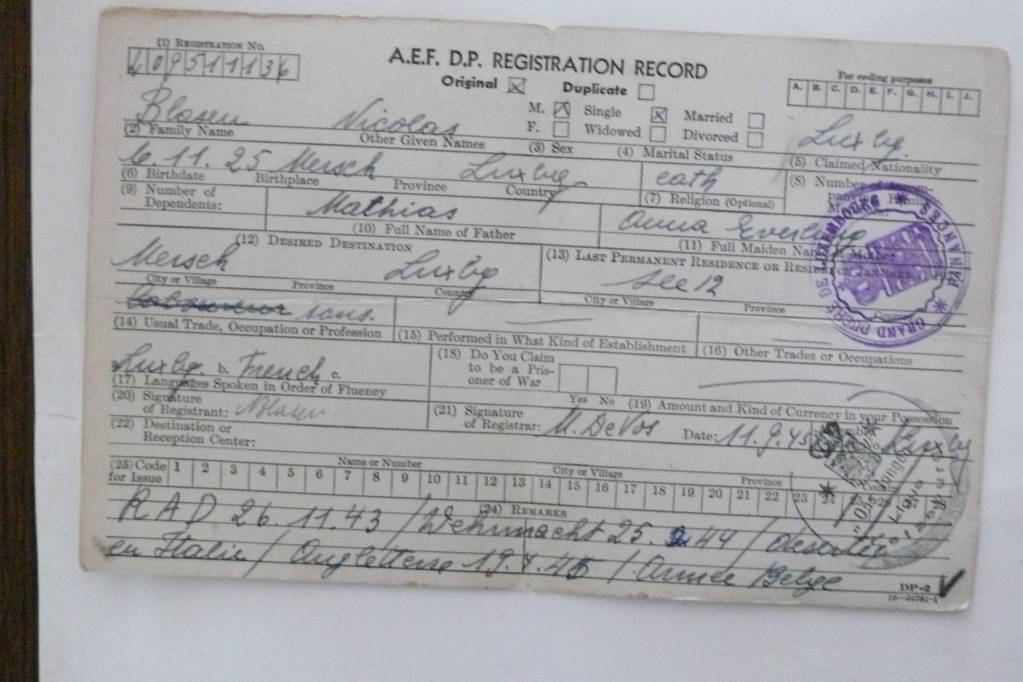 (1) REGISTRATION NO.
A.E.F. D.P. REGISTRATION RECORD
For coding purposes
Original Duplicate
A. B. C. D. E. F. G. H. I. J.
M. Single Married
Nicolas Luxbg.
F. Widowed Divorced
(2) Family Name Other Given Names (3) Sex (4) Marital Status (5) Claimed Nationality
6.11.25 Mersch Luxbg cath
(6) Birthdate Birthplace Province Country (7) Religion (Optional) (8) Number of
(9) Number of Dependents: Mathias Anna
(10) Full Name of Father (11) Full Maiden Name
(12) DESIRED DESTINATION (13) LAST PERMANENT RESIDENCE OR
Mersch Luxbg see 12
City or Village Province Country City or Village Province
sans.
(14) Usual Trade, Occupation or Profession (15) Performed in What Kind of Establishment (16) Other Trades or Occupations
GRAND DUCHE DE LUXEMBOURG
Luxbg b. French c.
(17) Languages Spoken in Order of Fluency
(18) Do You Claim to be a Prisoner of War
Yes No
(19) Amount and Kind of Currency in your Possession
(20) Signature of Registrant:
(21) Signature of Registrar: M. DeVos Date: 11.9.45
(22) Destination or Reception Center:
Name or Number City or Village Province
(23) Code for Issue 1 2 3 4 5 6 7 8 9 10 11 12 13 14 15 16 17 18 19 20 21 22 23 24
(24) REMARKS
RAD 26.11.43 / Wehrmacht 25. 44 /
en Italie / Angleterre / Armée Belge
DP-2